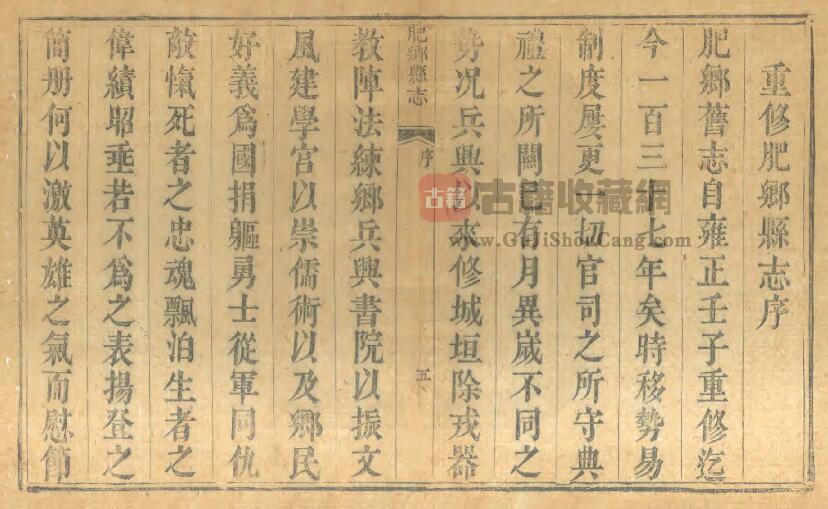 重修肥鄉縣志序
肥鄉舊志自雍正壬子重修迄
今一百三十七年矣時移勢易
制度屢更一切官司之所守典
禮之所關已有月異嵗不同之
势况兵興以來修城垣除戎器
肥鄉縣志
序
五
教陣法練鄉兵興書院以振文
風建學宫以崇儒術以及鄉民
好義爲國捐軀勇士從軍同仇
敵愾死者之忠魂飄泊生者之
偉績昭垂若不爲之表揚登之
簡册何以激英雄之氣而慰節
古籍
古籍收藏網
www.GuJiShouCang.com